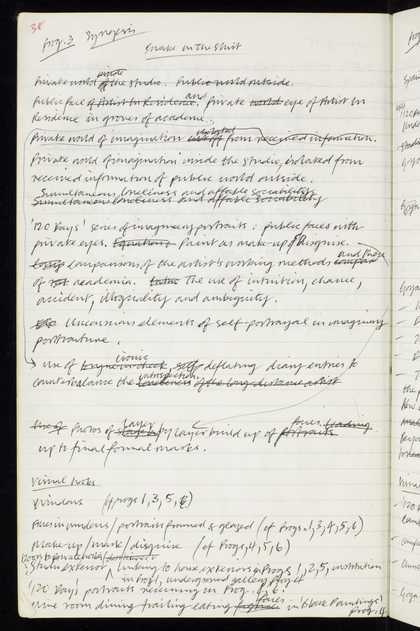 38
Prog. 3 Synopsis
Snake in the Shirt
Private world inside of the studio. Public world outside.
Public face of Artist in Residence and private world eye of Artist in
Residence in groves of academe.
Private world of imagination isolated cut off from received information.
Private world of imagination inside the studio, isolated from
received information of public world outside.
Simultaneous loneliness and affable sociability
Simultaneous loneliness and affable sociability
'120 Days' series of imaginary portraits: public faces with
private eyes. Paint as make-up / disguise.
Comparisons of the artist's working methods and those
of academia. The use of intuition, chance,
accident, illogicality and ambiguity.
Unconscious elements of self-portrayal in imaginary
portraiture.
Use of ironic self-deflating diary entries to
counterbalance the loneliness of the long distance artist
Use of Photos of layer by layer build up of faces
up to final formal masks.
Visual links
Windows (of progs 1, 3, 5, 6)
Faces in windows / portraits framed & glazed (cf Progs. 1, 3, 4, 5, 6)
Make-up / mask / disguise (cf Progs, 4, 5, 6)
Studio exterior linking to house exteriors in Progs 1, 2, 5, institution
in Prog 1, underground gallery Prog 4
'120 Days' portraits recurring in Prog. 1, 6.
Dining room dining trailing eating faces in 'Black Paintings'
Prog. 4